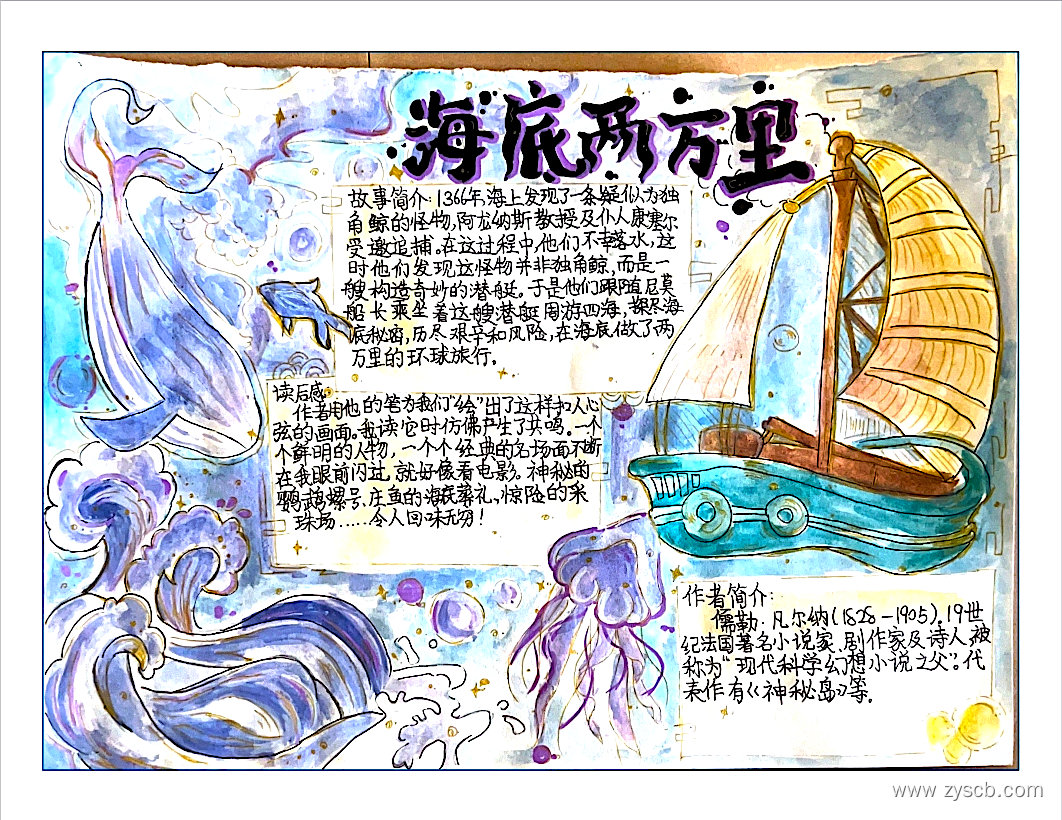 海底两万里
故事简介:1366年,海上发现了一条疑似为独
角鲸的怪物,阿龙纳斯教授及仆人康塞尔
受邀追捕。在这过程中,他们不幸落水,这
时他们发现这怪物并非独角鲸,而是一
艘构造奇妙的潜艇。于是他们跟随尼莫
船长乘坐着这艘潜艇周游四海,探尽海
底秘密,历尽艰辛和风险,在海底做了两
万里的环球旅行。
读后感:
作者用他的笔为我们“绘”出了这样扣人心
弦的画面。我读它时仿佛产生了共鸣。一个
个鲜明的人物,一个个经典的名场面不断
在我眼前闪过,就好像看电影。神秘的
鹦鹉螺号、庄鱼的海底葬礼,惊险的采
珠场……令人回味无穷!
作者简介:
儒勒·凡尔纳(1828-1905),19世
纪法国著名小说家、剧作家及诗人,被
称为“现代科学幻想小说之父”。代
表作有《神秘岛》等。
www.zyscb.com